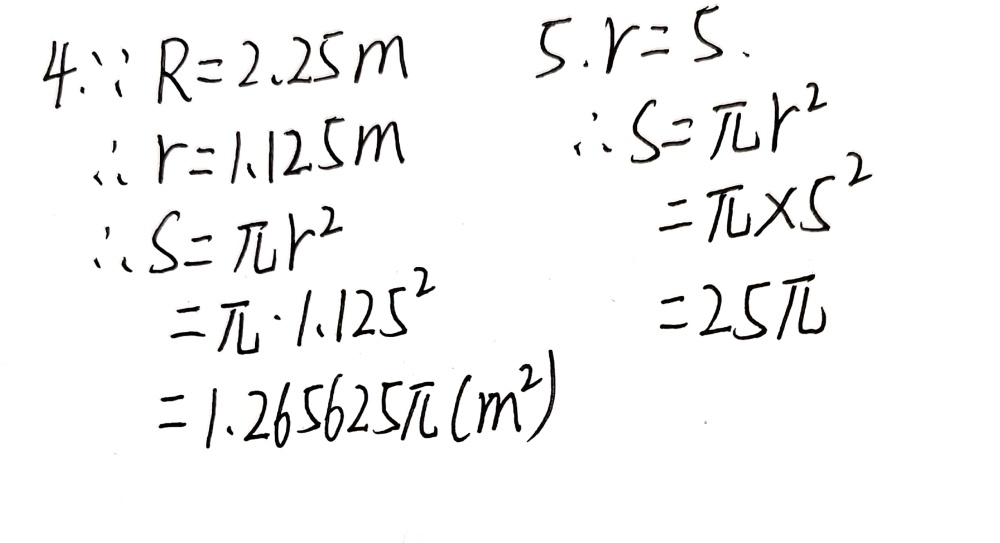 4.∵ R=2.25m
∴ r=1.125m
∴ S=πr²
=π·1.125²
=1.265625π(m²)
5.r=5.
∴ S=πr²
=π×5²
=25π